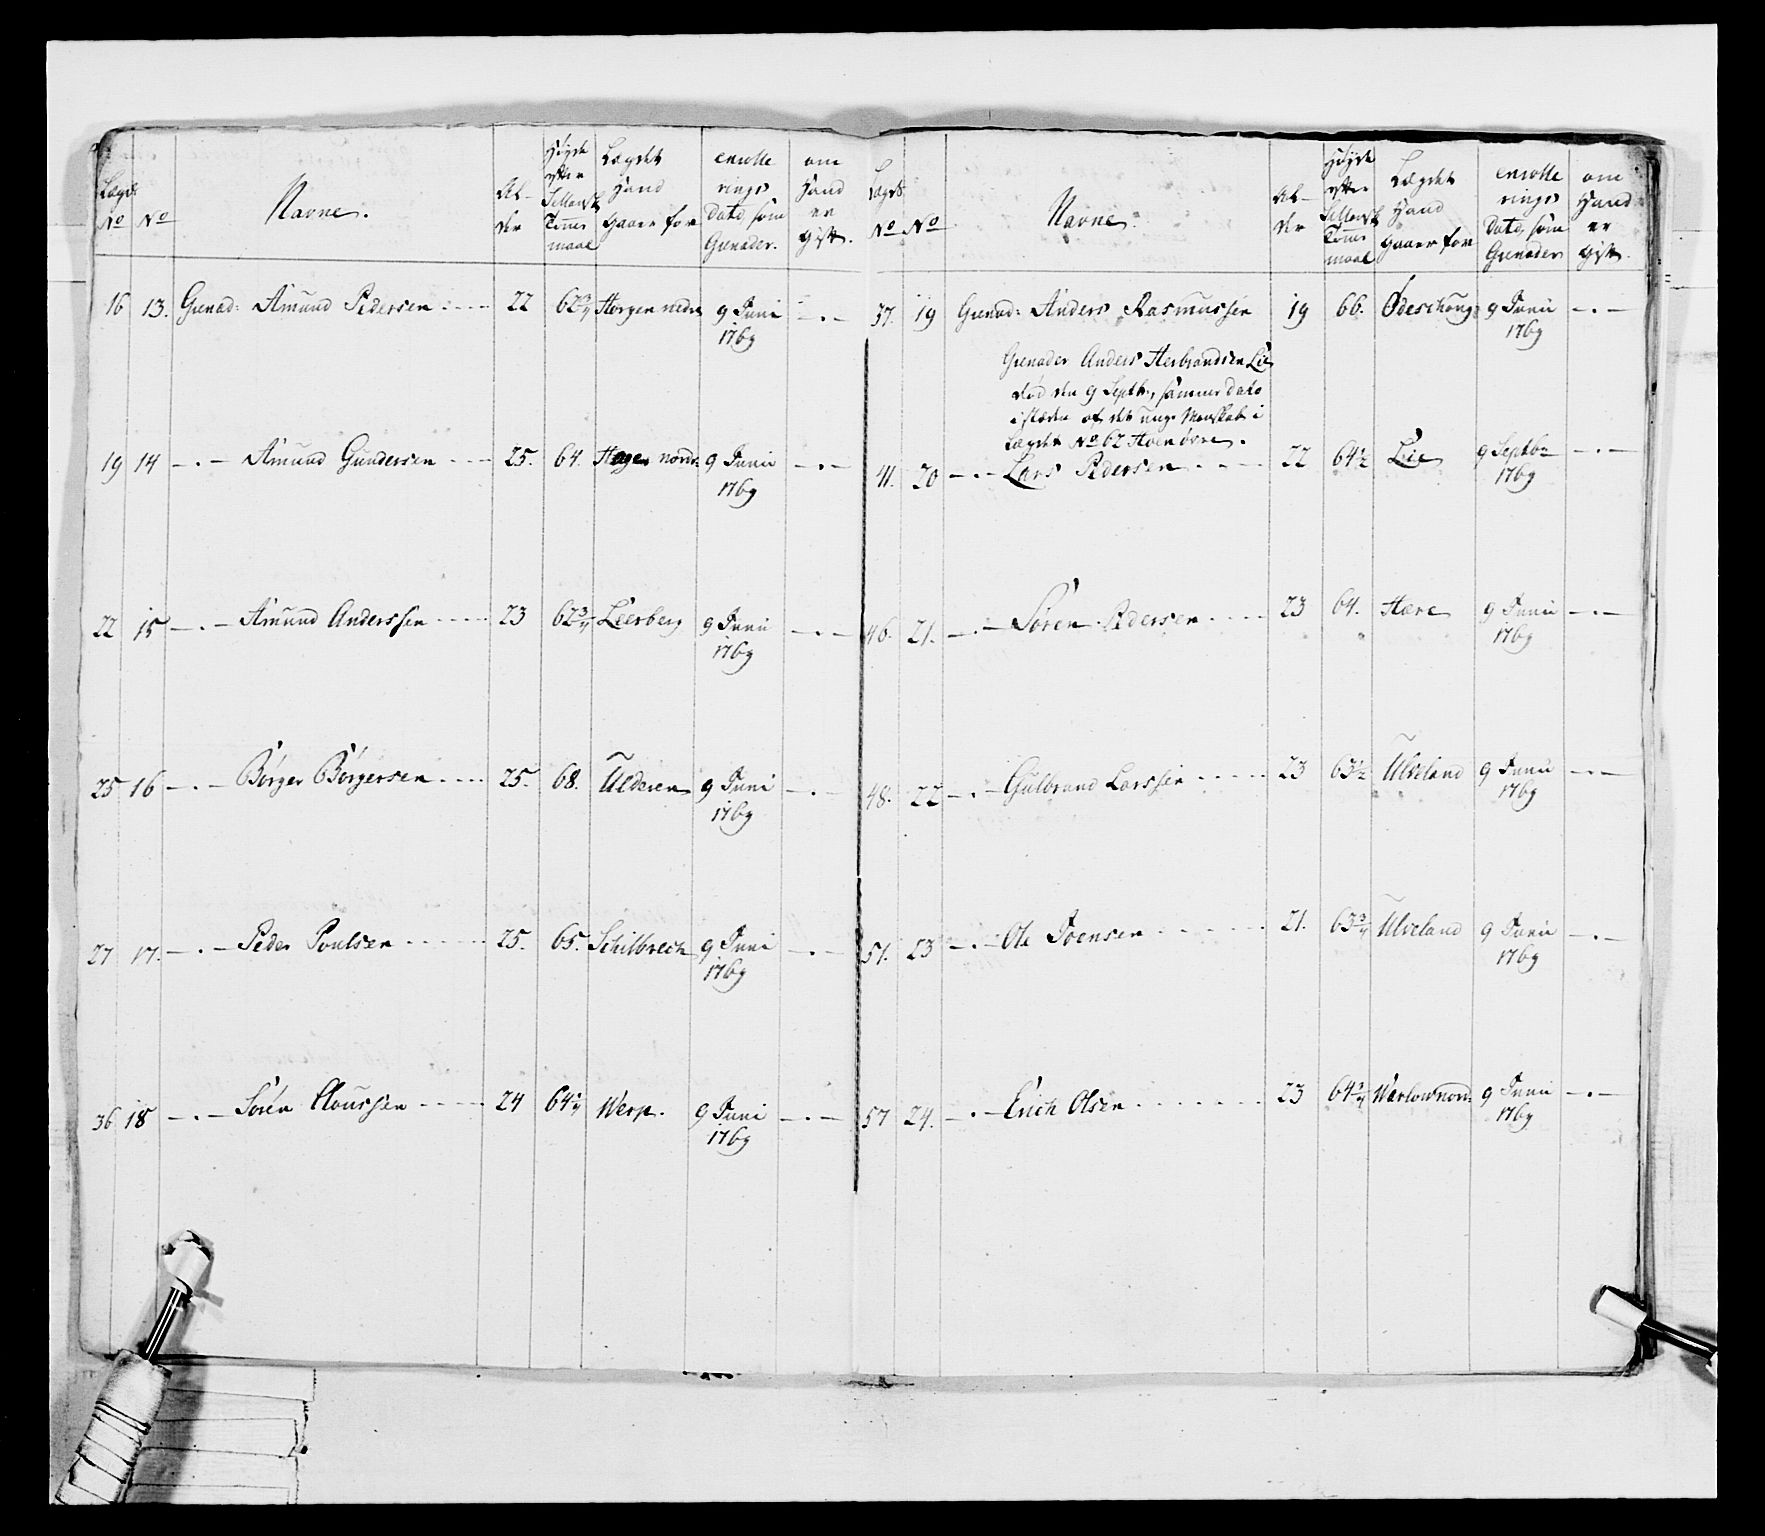 Lægds No
No
Navne.
Al-der
Høyde efter Sellansk Tomme maal
Lægdet Hand gaaer for
enrolle rings Dato som Grenader.
om Hand er gift.
16 13. Grenad: Amund Pedersen 22 62¾ Horgen nedre 9 Junii 1769 —.—
19 14 —.— Amund Gundersen 25. 64. Hagen nordr 9 Junii 1769 —.—
22 15 —.— Amund Anderssen 23 62¾ Leerberg 9 Junii 1769 —.—
25 16 —.— Börger Börgersen 25. 68. Ulderen 9 Juni 1769 —.—
27 17. —.— Peder Poulsen 25. 65. Schilbrech 9 Juni 1769 —.—
36 18 —.— Sören Clourssen 24 64¼ Werp. 9 Juni 1769 —.—
Lægds No
No
Navne.
Al-der
Høyde efter Sellansk Tomme maal
Lægdet Hand gaaer for
enrolle rings Dato som Grenader
om Hand er gift.
37. 19 Grenad: Anders Rasmussen 19 66. Ödeschoug 9 Junii 1769 —.—
Grenader Anders Herbrandsen Lie
död den 9 Septbr, samme Dato
i stæden af det unge Mandskab i
Lægdet No 62 Hoen övre.
41. 20 —.— Lars Pedersen 22 64½ Lie 9 Septbr 1769 —.—
46. 21. —.— Sören Pedersen 23 64. Hære 9 Junii 1769 —.—
48. 22 —.— Gulbrand Larssen 23 63½ Ulveland 9 Junii 1769 —.—
51. 23 —.— Ole Joensen 21. 63¾ Ulveland 9 Junii 1769 —.—
57 24. —.— Erich Olsen 23 64¾ Warlow nord. 9 Junii 1769 —.—